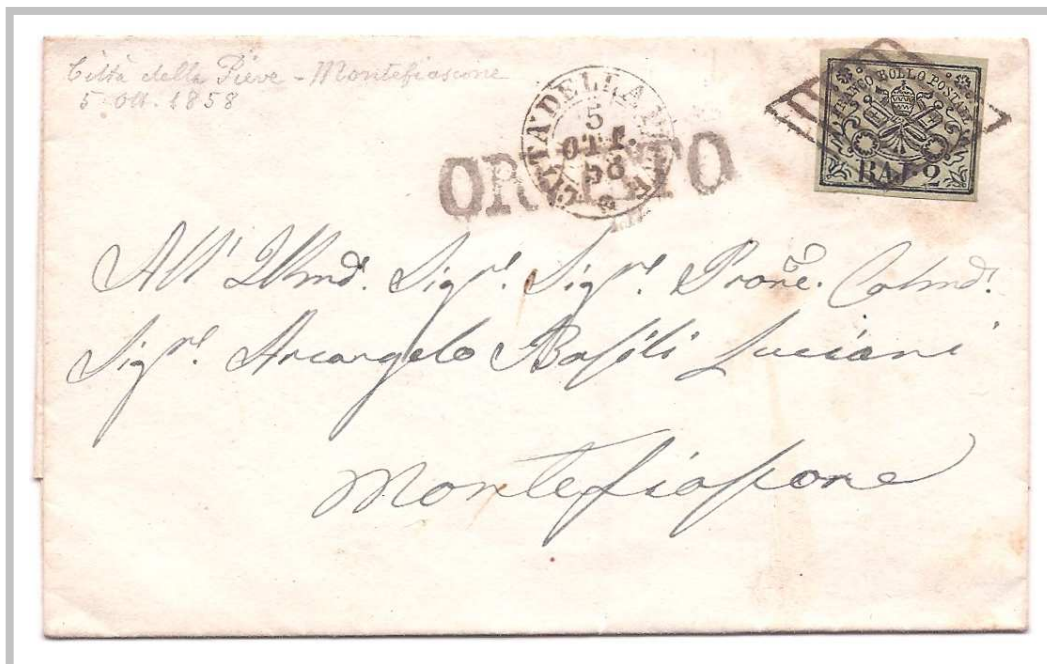 Città della Pieve - Montefiascone
5 Ott. 1858
CITTA' DELLA PIEVE
5
OTT.
58
ORVIETO
FRANCO BOLLO POSTALE
BAJ. 2
All' Illmo. Sigr. Sigr. Prone. Colmo.
Sigr. Arcangelo Luciani
Montefiascone